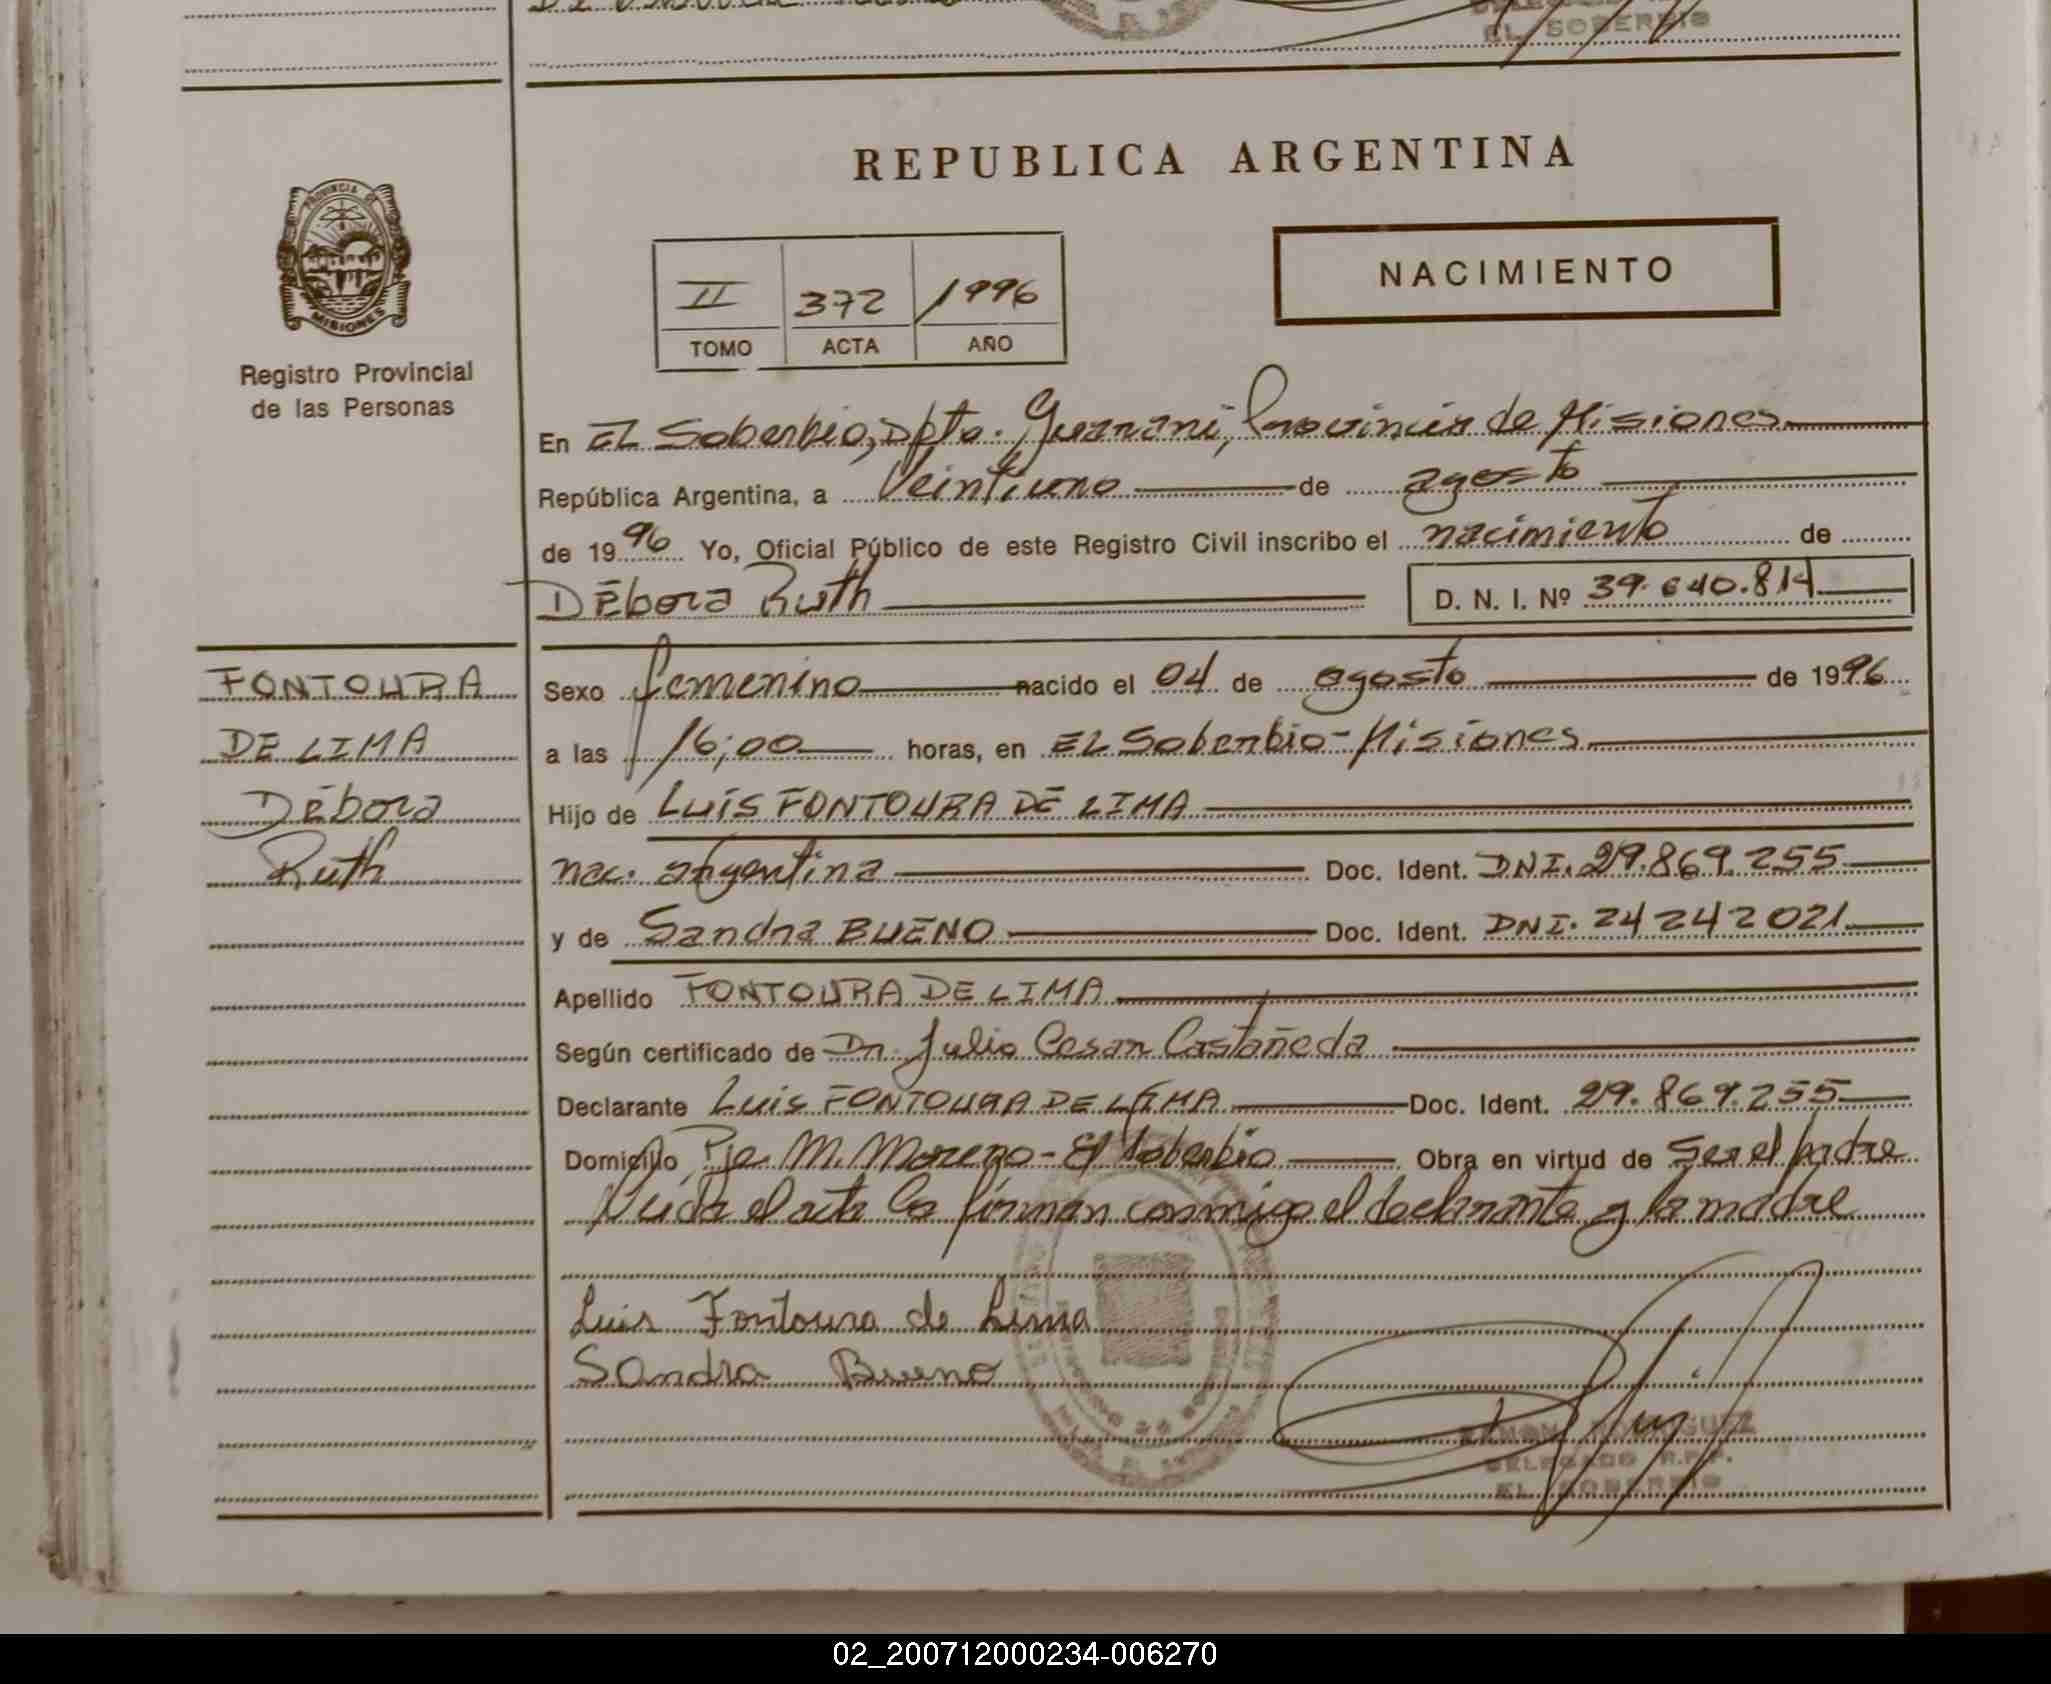 EL SOBERBIO
REPUBLICA ARGENTINA
PROVINCIA DE
MISIONES
Registro Provincial
de las Personas
NACIMIENTO
II 372 1996
TOMO ACTA AÑO
En El Soberbio, Dpto. Guarani, Provincia de Misiones
República Argentina, a Veintiuno de agosto
de 1996 Yo, Oficial Público de este Registro Civil inscribo el nacimiento de
Débora Ruth D. N. I. Nº 39.640.814
FONTOURA
DE LIMA
Débora
Ruth
Sexo femenino nacido el 04 de agosto de 1996
a las 16;00 horas, en El Soberbio-Misiones
Hijo de LUIS FONTOURA DE LIMA
nac. argentina Doc. Ident. DNI. 29.869.255
y de Sandra BUENO Doc. Ident. DNI. 24 242 021
Apellido FONTOURA DE LIMA
Según certificado de Dr. Julio Cesar Castañeda
Declarante Luis FONTOURA DE LIMA Doc. Ident. 29.869.255
Domicilio Pje. M. Moreno - El Soberbio Obra en virtud de Ser el padre
leida el acta la firman conmigo el declarante y la madre
Luis Fontoura de Lima
Sandra Bueno
RAMON RODRIGUEZ
DELEGADO R.P.P.
EL SOBERBIO
02_200712000234-006270